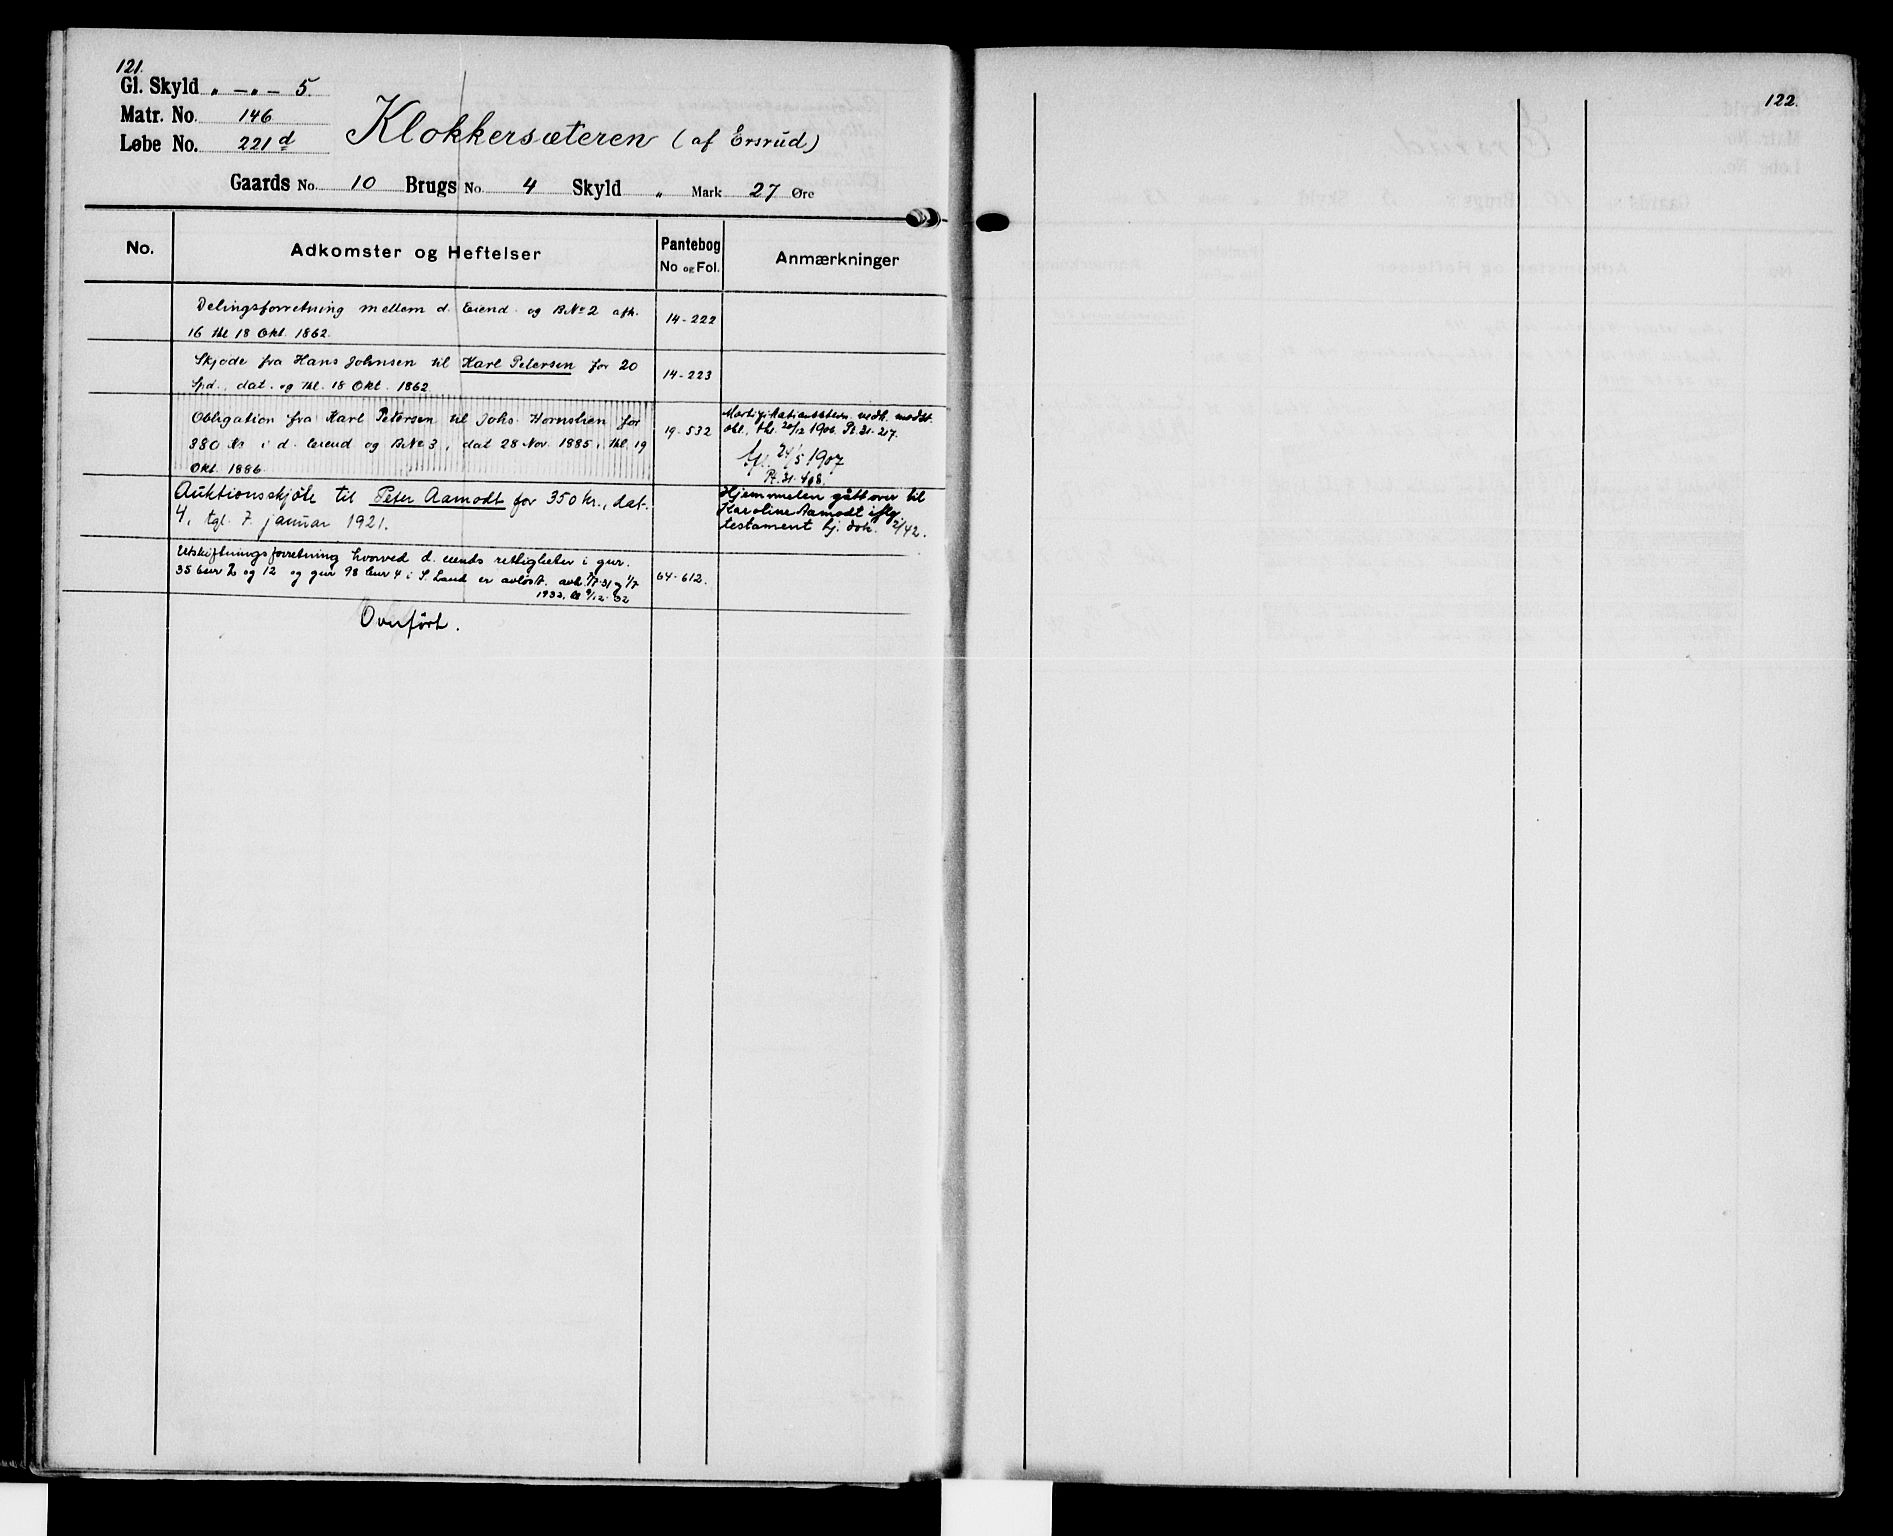 121.
Gl. Skyld „ – „ – 5.
Matr. No. 146
Løbe No. 221 d
Klokkersæteren (af Ersrud)
Gaards No. 10 Brugs No. 4 Skyld „ Mark 27 Øre
No. Adkomster og Heftelser Pantebog No og Fol. Anmærkninger
Delingsforretning mellem d. Eiend. og BNo 2 afh.
16 thl 18 Okt. 1862. 14-222
Skjøde fra Hans Johnsen til Karl Petersen for 20
Spd., dat. og thl. 18 Okt. 1862. 14-223
Obligation fra Karl Petersen til Johs. Hornslien for
380 Kr i d. Eiend og BNo 3, dat 28 Nov. 1885, thl. 19
Okt. 1886. 19-532
Mortifikationsbevn. vedk. medst.
obl. thl. 20/12 1906. Pt. 31-217.
24/5 1907
Pt. 31-498.
Auktionsskjøte til Peter Aamodt for 350 kr., dat.
4, tgl. 7. januar 1921.
Hjemmelen gått over til
Karoline Aamodt iflg.
testament hj. dok. 2/42.
Utskiftningsforretning hvorved d. eiends rettigheter i gnr.
35 bnr 2 og 12 og gnr 98 bnr 4 i S. Land er avløst. avh.
1932, 32 64-612.
Overført.
122.